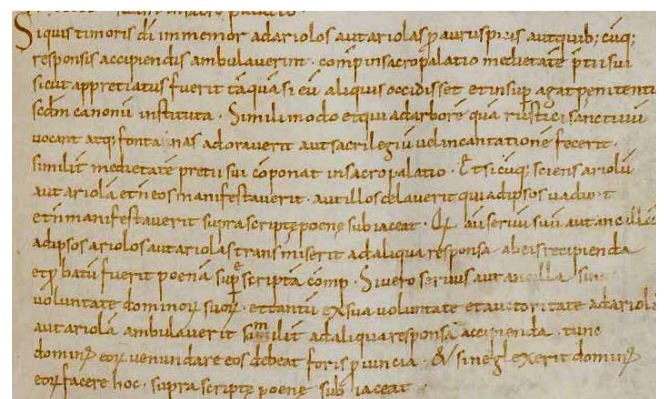 Si quis timoris dī inmemor ad ariolos aut ariolas ꝓ auruspiciis aut quib; cūq;
responsis accipiendis ambulaverint · comp̄ in sacro palatio medietatē p̄tii sui
sicut appretiatus fuerit tāquā si eū aliquis occidisset et insup agat penitentī
scdm canonū instituta · Simili modo et qui ad arborē quā rustici sanctivū
vocant atq; fontanas adoraverit aut sacrilegiū vel incantationē fecerit ·
similit medietatē pretii sui cōponat in sacro palatio · Et si cuq; sciens ariolū
aut ariolā et n̄ eos manifestaverit · aut illos celaverit qui ad ipsos vad t
et n̄ manifestaverit suprascriptę poenę subiaceat · servū suū aut ancillā
ad ipsos ariolos aut ariolas transmiserit ad aliqua responsa ab eis recipienda
et ꝓbatū fuerit poenā sup scriptā comp · Si vero servus aut ancilla sine
voluntate dominoꝝ suoꝝ · et tantū ex sua voluntate et auctoritate ad ariolū
aut ariolā ambulaverit similit ad aliqua responsa accipienda · tunc
domin eoꝝ venundare eos debeat foris ꝓvincia · & si neglexerit domin
eoꝝ facere hoc · suprascriptę poenę subiaceat ·